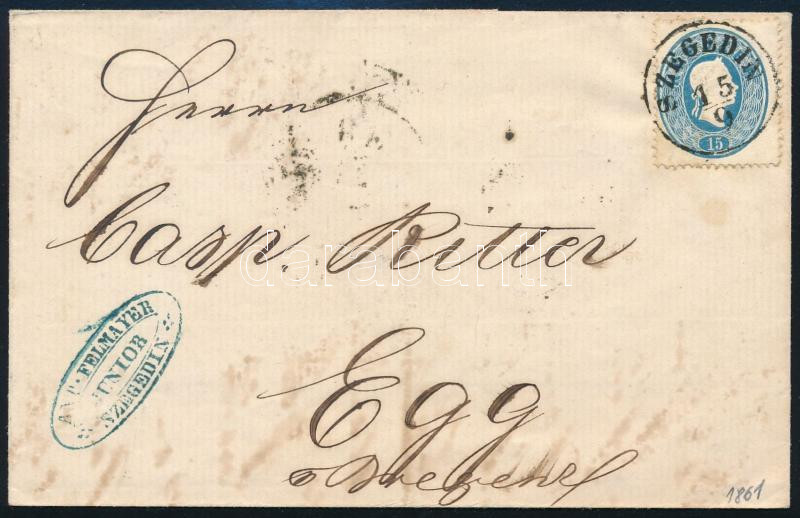 Herrn
Casp. Ritter
Egg
SZEGEDIN
15
9
15
ANT. FELMAYER
JUNIOR
SZEGEDIN
1861
darabanth